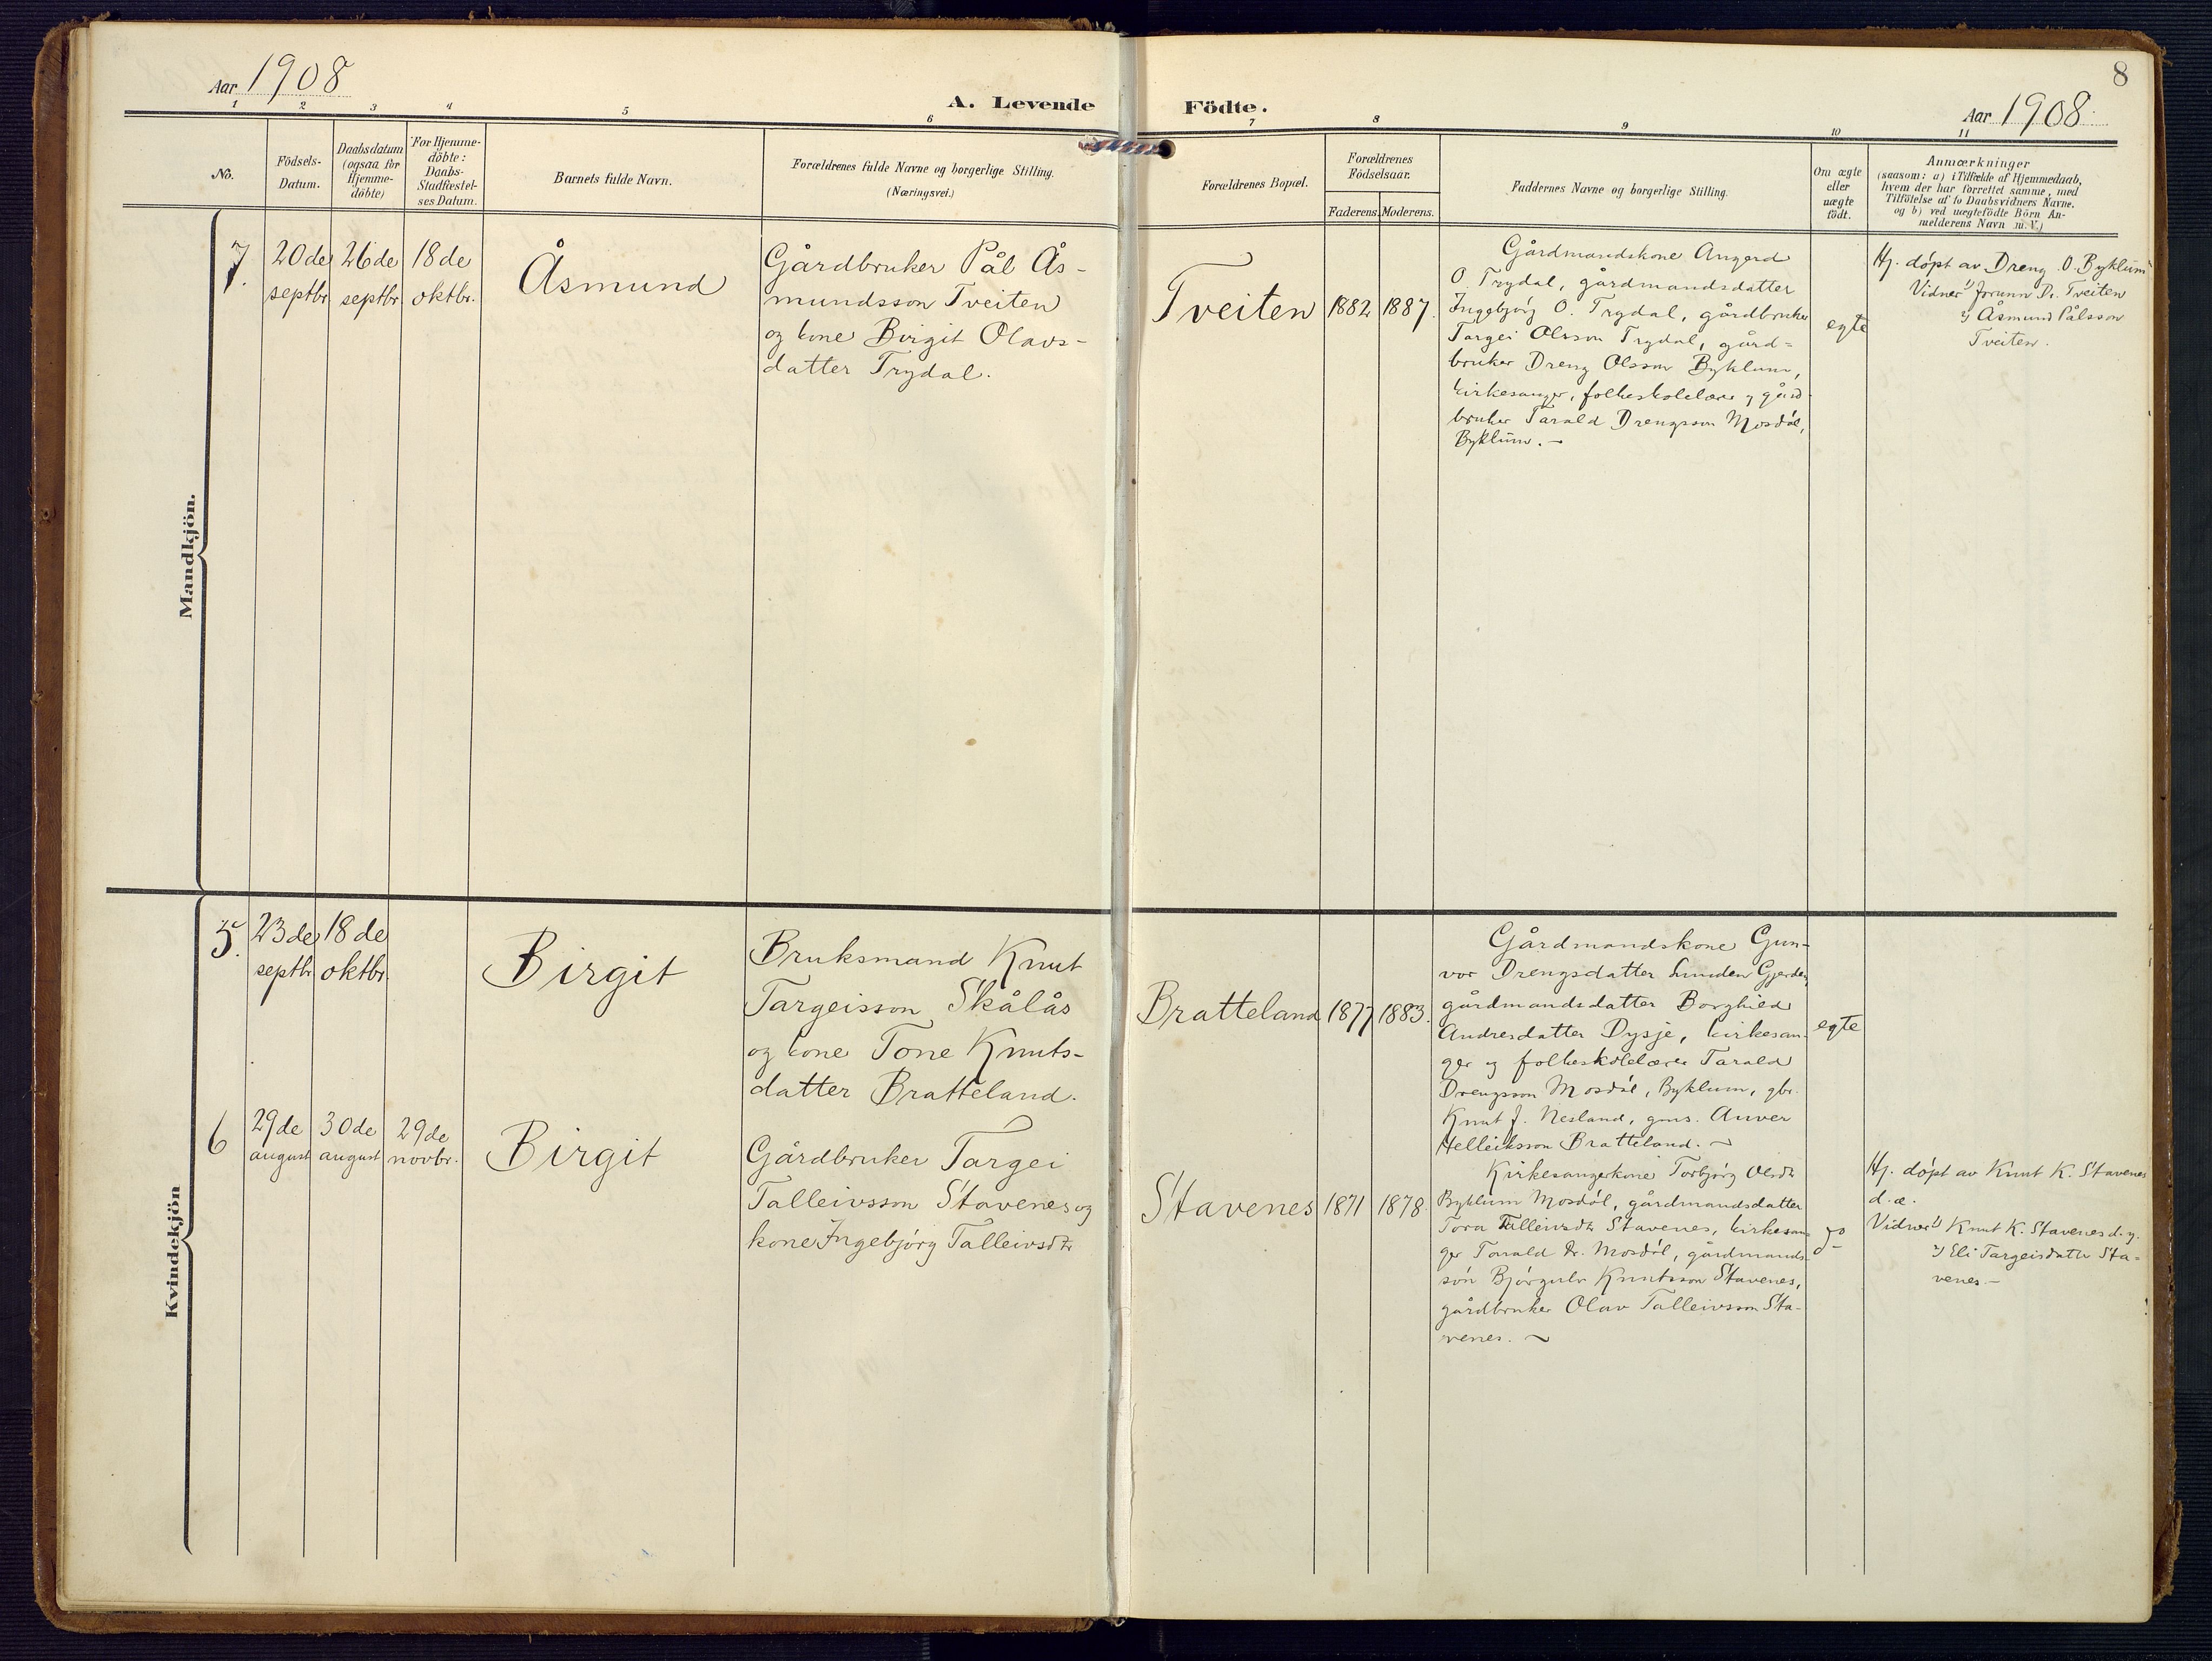 8
Aar 1908
A. Levende Födte.
Aar 1908.
1 2 3 4 5 6 7 8 9 10 11
No.
Födsels-
Datum.
Daabsdatum
(ogsaa for
Hjemme-
döbte)
For Hjemme-
döbte:
Daabs-
Stadfæstel-
ses Datum.
Barnets fulde Navn.
Forældrenes fulde Navne og borgerlige Stilling.
(Næringsvei.)
Forældrenes Bopæl.
Forældrenes
Födselsaar.
Faderens. Moderens.
Faddernes Navne og borgerlige Stilling.
Om ægte
eller
uægte
födt.
Anmærkninger
(saasom: a) i Tilfælde af Hjemmedaab,
hvem der har forrettet samme, med
Tilföielse af to Daabsvidners Navne.
og b) ved uægtefödte Börn An-
melderens Navn m.V.)
Mandkjön.
7.
20de
septbr
26de
septbr.
18de
oktbr.
Åsmund
Gårdbruker Pål Ås-
mundsson Tveiten
og kone Birgit Olavs-
datter Trydal.
Tveiten
1882
1887.
Gårdmandskone Angerd
O. Trydal, gårdmandsdatter
Ingebjörg O. Trydal, gårdbruker
Targei Olsson Trydal, gård-
bruker Dreng Olsson Byklum,
kirkesanger, folkeskolelærer og gård-
bruker Tarald Drengsson Mosdöl,
Byklum. –
egte
Hj. döpt av Dreng O. Byklum
Vidner 1) Jorunn Dr. Tveiten
2) Åsmund Pålsson
Tveiten.
Kvindekjön
5.
23de
septbr
18de
oktbr.
Birgit
Bruksmand Knut
Targeisson Skålås
og kone Tone Knuts-
datter Bratteland.
Bratteland
1877
1883.
Gårdmandskone Gun-
vor Drengsdatter Lunden Gjerden,
gårdmandsdatter Borghild
Andresdatter Dysje, kirkesan-
ger og folkeskolelærer Tarald
Drengsson Mosdöl, Byklum, gbr.
Knut J. Nesland, gms. Anver
Helleiksson Bratteland. –
egte
6
29de
august
30de
august
29de
novbr.
Birgit
Gårdbruker Targei
Talleivsson Stavenes og
kone Ingebjörg Talleivsdtr
Stavenes
1871
1878.
Kirkesangerkone Torbjörg Olsdtr
Byklum Mosdöl, gårdmandsdatter
Tora Talleivsdtr Stavenes, kirkesan-
ger Tarald Dr. Mosdöl, gårdmands-
sön Björgulv Knutsson Stavenes,
gårdbruker Olav Talleivsson Sta-
venes. –
Hj. döpt av Knut K. Stavenes
d. æ.
Vidner 1) Knut K. Stavenes d. y.
2) Eli Targeisdatter Sta-
venes. –